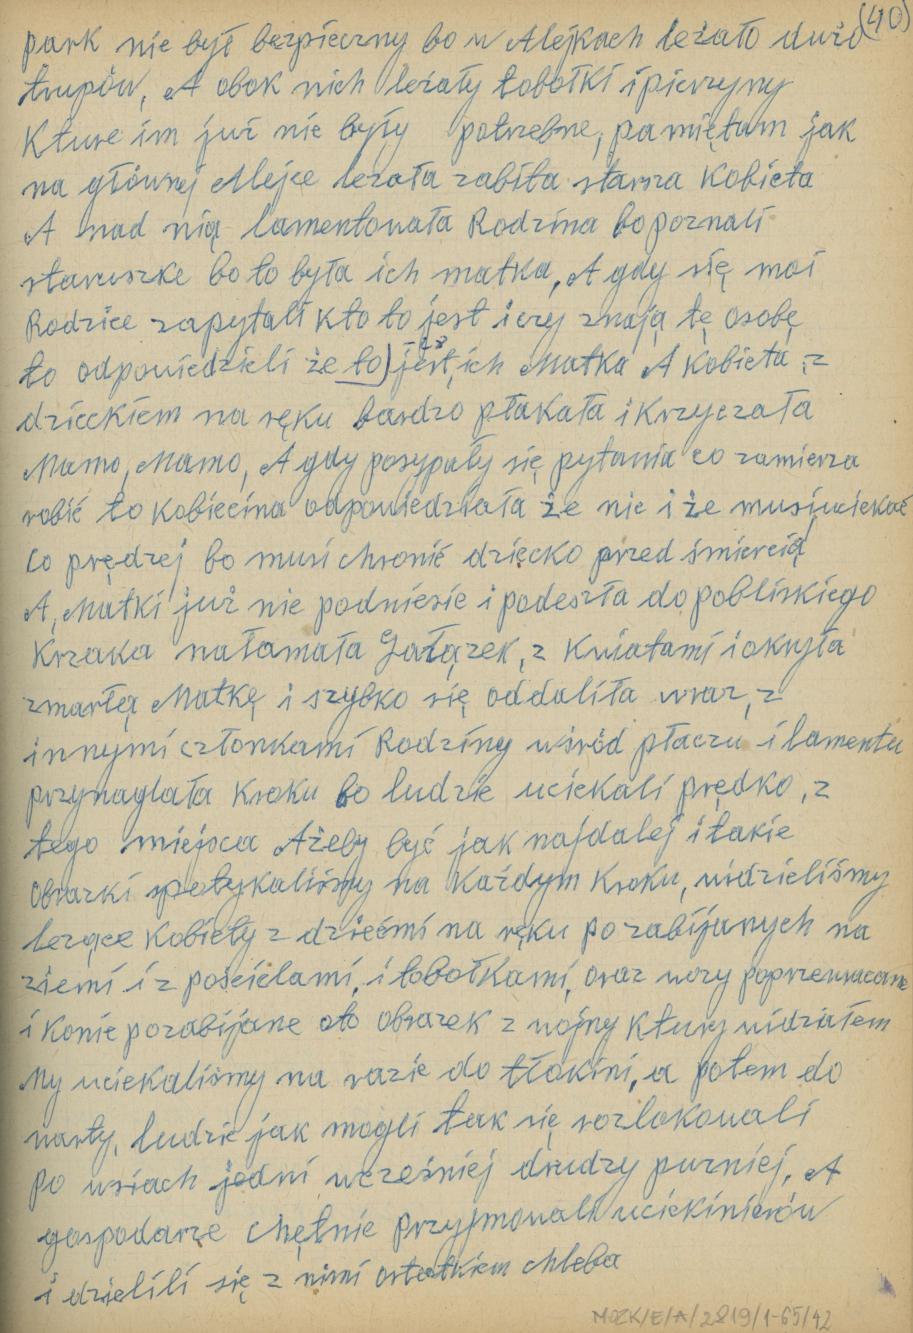 (40)
park nie był bezpieczny bo w Alejkach leżało dużo
trupów, A obok nich leżały tobołki i pierzyny
Kture im już nie były potrzebne, pamiętam jak
na głównej Alejce leżała zabita starsza Kobieta
A nad nią lamentowała Rodzina bo poznali
staruszke bo to była ich matka, A gdy się moi
Rodzice zapytali kto to jest i czy znają tę osobę
to odpowiedzieli że to jest ich Matka A Kobieta, z
dzieckiem na ręku bardzo płakała i Krzyczała
Mamo, Mamo, A gdy posypały się pytania co zamierza
robić to Kobiecina odpowiedziała że nic i że musi uciekać
co prędzej bo musi chronić dziecko przed śmiercią
A, Matki już nie podniesie i podeszła do pobliskiego
Krzaka nałamała Gałązek, z Kwiatami i okryła
zmarłą Matkę i szybko się oddaliła wraz, z
innymi członkami Rodziny wśród płaczu i lamentu
przynaglała Kroku bo ludzie uciekali prędko, z
tego miejsca Ażeby być jak najdalej i takie
obrazki spotykaliśmy na Każdym Kroku, widzieliśmy
leżące Kobiety z dziećmi na ręku pozabijanych na
ziemi i z pościelami, i tobołkami, oraz wozy poprzewracane
i Konie pozabijane oto obrazek z wojny Ktury widziałem
My uciekaliśmy na razie do tłokini, a potem do
warty, ludzie jak mogli tak się rozlokowali
po wsiach jedni wcześniej drudzy puzniej, A
gospodarze chętnie przyjmowali uciekinierów
i dzielili się z nimi ostatkiem chleba
MOZK/E/A/2819/1-65/42